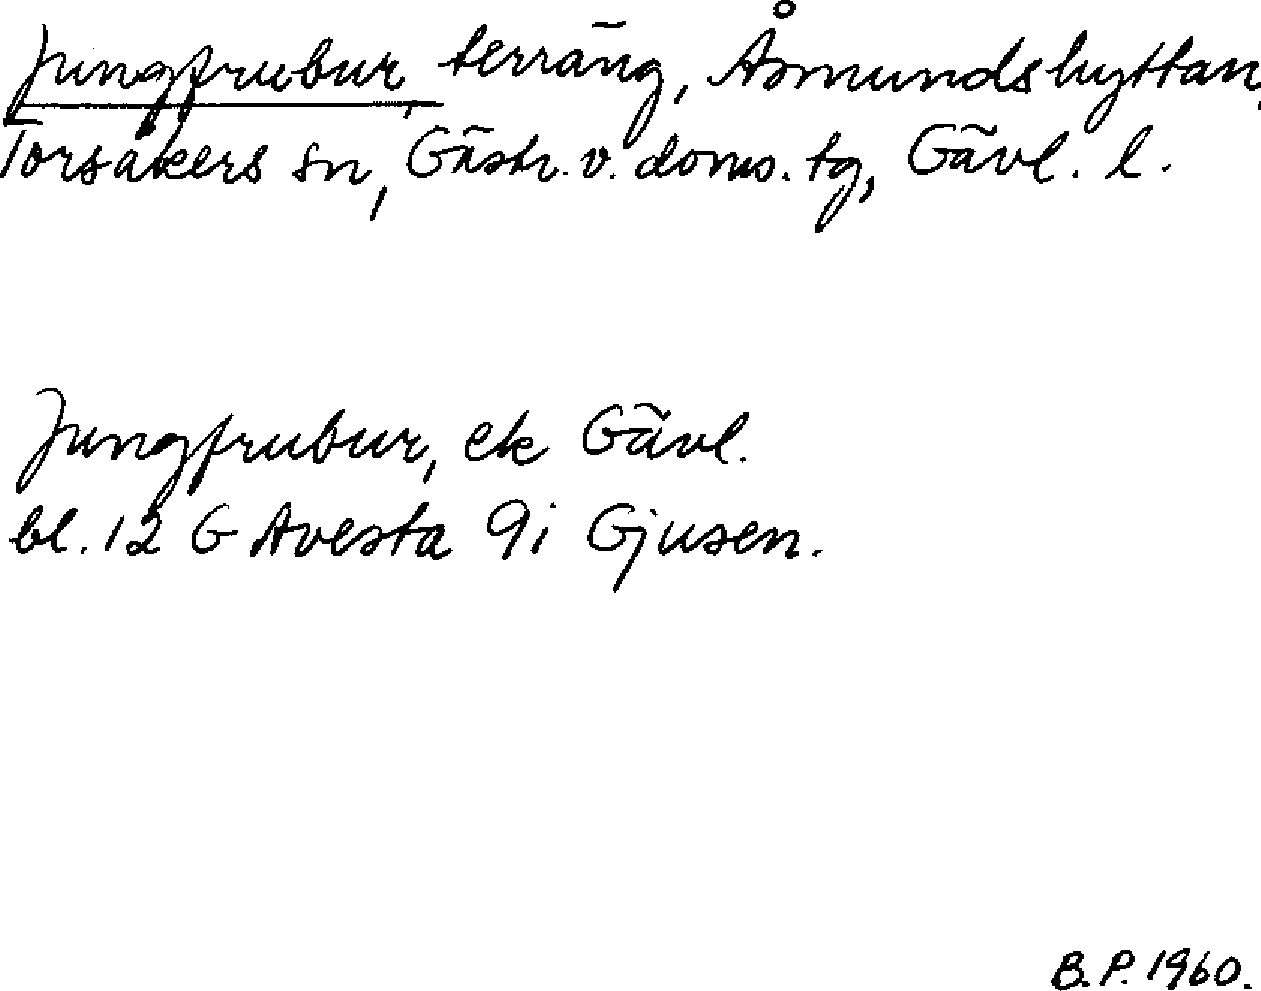 Jungfrubur, terräng, Åsmundshyttan,
Torsåkers sn, Gästr. v. doms. tg, Gävl. l.
Jungfrubur, ek Gävl.
bl. 12 G Avesta 9i Gjusen.
B.P. 1960.